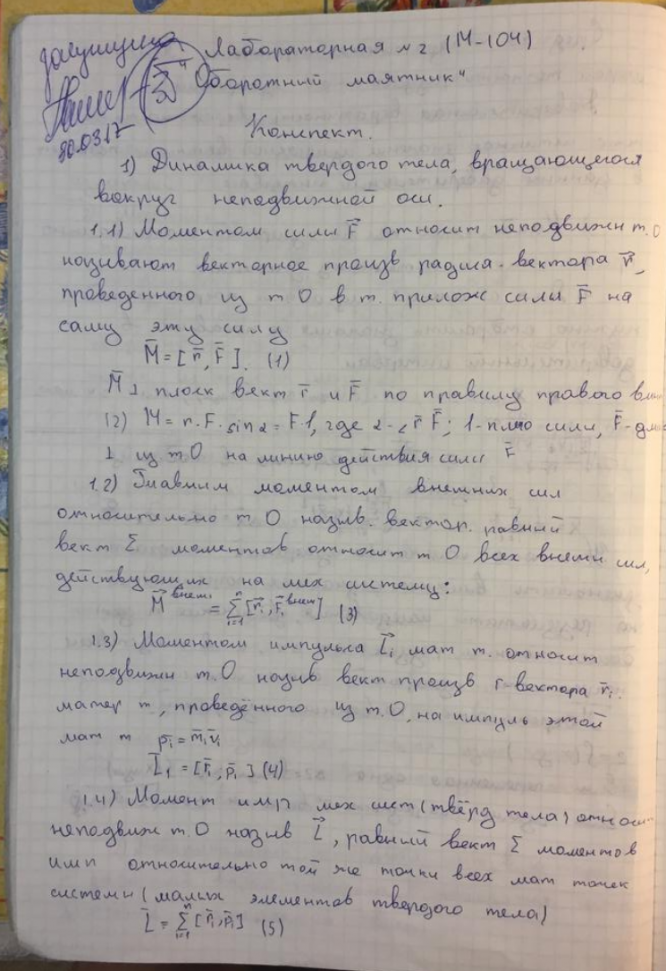 Лабораторная №2 (М-104)
"Оборотный маятник"
30.03.17
Конспект.
1) Динамика твердого тела, вращающегося
вокруг неподвижной оси.
1.1) Моментом силы F⃗ относит неподвижн т. О
называют векторное произв радиа вектора r⃗,
проведенного из т О в т. прилож силы F̄ на
саму эту силу
M̄ = [r̄, F̄]. (1)
M̄ ⊥ плоск вект r̄ и F̄ по правилу правого
(2) M = r·F·sin α = F·l, где α - ∠ r̄ F̄; l - плечо силы, F̄ -
⊥ из т О на линию действия силы F̄
1.2) Главным моментом внешних сил
относительно т О назыв. вектор. равный
вект Σ моментов относит т О всех внешн сил,
действующих на мех систему:
M⃗ внеш = Σⁿᵢ₌₁ [r⃗ᵢ, F⃗ᵢ внеш] (3)
1.3) Моментом импульса L⃗ᵢ мат т. относит
неподвижн т. О назыв вект произв r вектора r⃗ᵢ
матер т, проведённого из т. О, на импуль этой
мат т p̄ᵢ = m̄ᵢv̄ᵢ
L̄₁ = [r̄ᵢ, p̄ᵢ] (4)
1.4) Момент имп мех сист (твёрд тела) относи
неподвиж т. О назыв L⃗, равный вект Σ моментов
имп относительно той же точки всех мат точек
системы (малых элементов твердого тела)
L̄ = Σⁿᵢ₌₁ [r̄ᵢ, p̄ᵢ] (5)